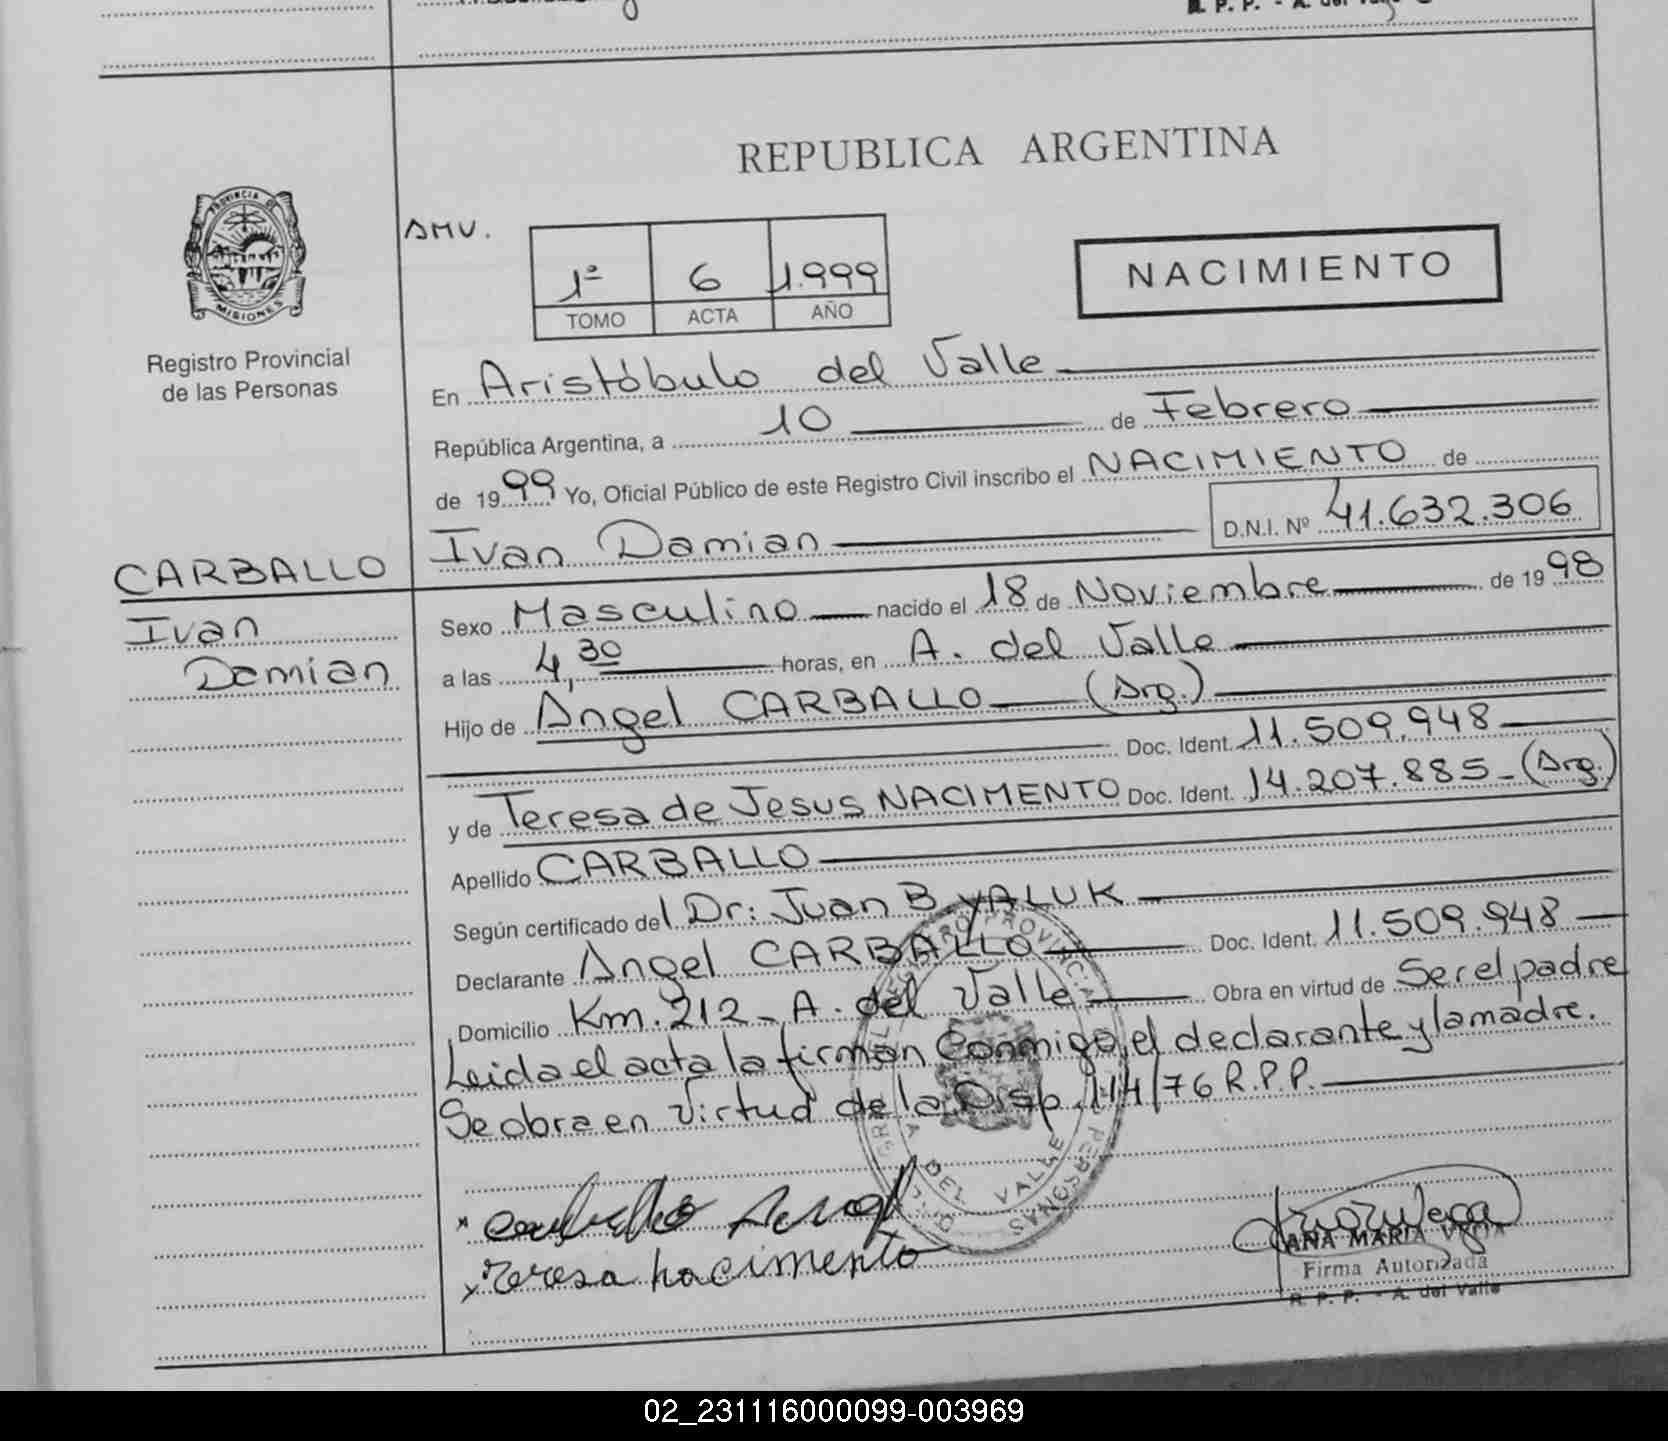 REPUBLICA ARGENTINA
PROVINCIA DE MISIONES
Registro Provincial
de las Personas
AMV.
1º 6 1.999
TOMO ACTA AÑO
NACIMIENTO
En Aristóbulo del Valle
República Argentina, a 10 de Febrero
de 1999 Yo, Oficial Público de este Registro Civil inscribo el NACIMIENTO de
Ivan Damian D.N.I. Nº 41.632.306
CARBALLO
Ivan
Damian
Sexo Masculino nacido el 18 de Noviembre de 1998
a las 4,30 horas, en A. del Valle
Hijo de Angel CARBALLO (Arg.)
Doc. Ident. 11.509.948
y de Teresa de Jesus NACIMENTO Doc. Ident. 14.207.885-(Arg.)
Apellido CARBALLO
Según certificado del Dr: Juan B YALUK
Declarante Angel CARBALLO Doc. Ident. 11.509.948
Domicilio Km. 212 - A. del Valle Obra en virtud de Ser el padre
Leida el acta la firman conmigo, el declarante y la madre.
Se obra en virtud de la Disp. 114/76 R.P.P.
Carballo Angel
Teresa nacimento
ANA MARIA VEGA
Firma Autorizada
R. P. P. - A. del Valle
02_231116000099-003969